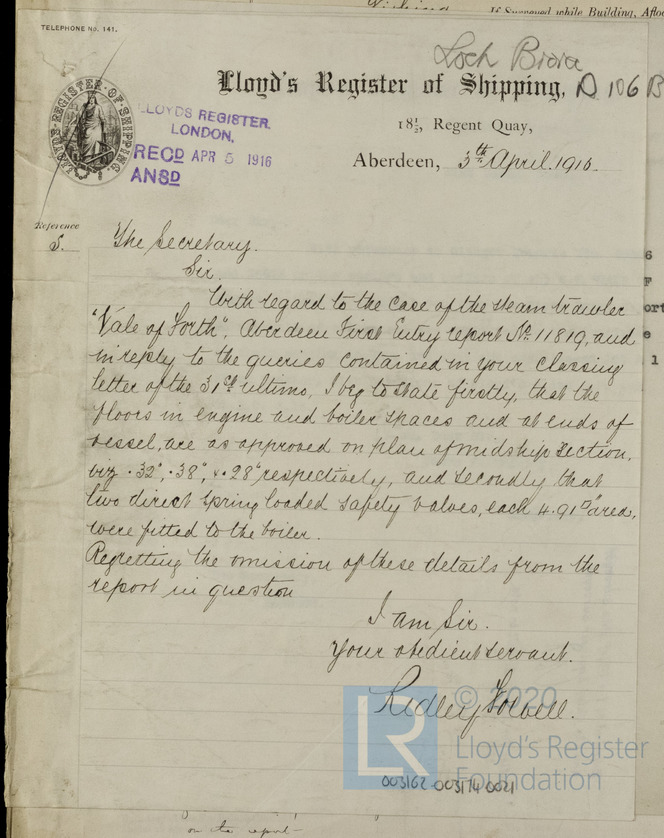 If Surveyed while Building, Afloat
TELEPHONE No. 141.
Loch Brora
Lloyd's Register of Shipping, D 106 B
LLOYD'S REGISTER OF SHIPPING
LLOYDS REGISTER.
LONDON.
RECD APR 5 1916
ANSD
18½, Regent Quay,
Aberdeen, 3rd April. 1916.
Reference
S.
The Secretary.
Sir.
With regard to the case of the steam trawler
"Vale of Forth". Aberdeen First Entry report No. 11819, and
in reply to the queries contained in your classing
letter of the 31st ultimo, I beg to state firstly, that the
floors in engine and boiler spaces and at ends of
vessel, are as approved on plan of midship section.
viz .32", .38", & .28" respectively, and secondly that
two direct spring loaded safety valves, each 4.91 □" area,
were fitted to the boiler.
Regretting the omission of these details from the
report in question
I am Sir.
Your obedient servant.
Ridley
© 2020
LR
Lloyd's Register
Foundation
003162-003174-0021
on the report-